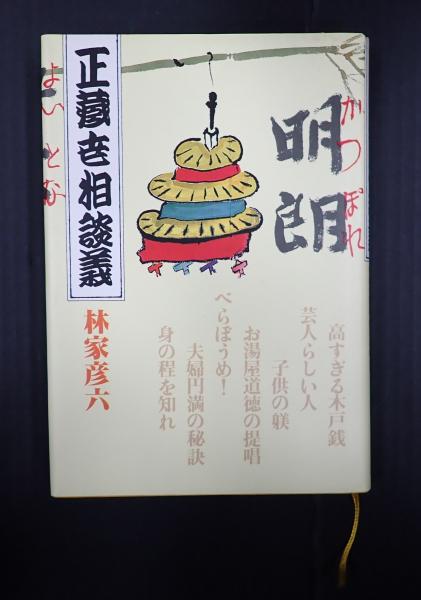 明朗
かつぽれ
よいとな
正蔵世相談義
林家彦六
高すぎる木戸銭
芸人らしい人
子供の躾
お湯屋道徳の提唱
べらぼうめ！
夫婦円満の秘訣
身の程を知れ